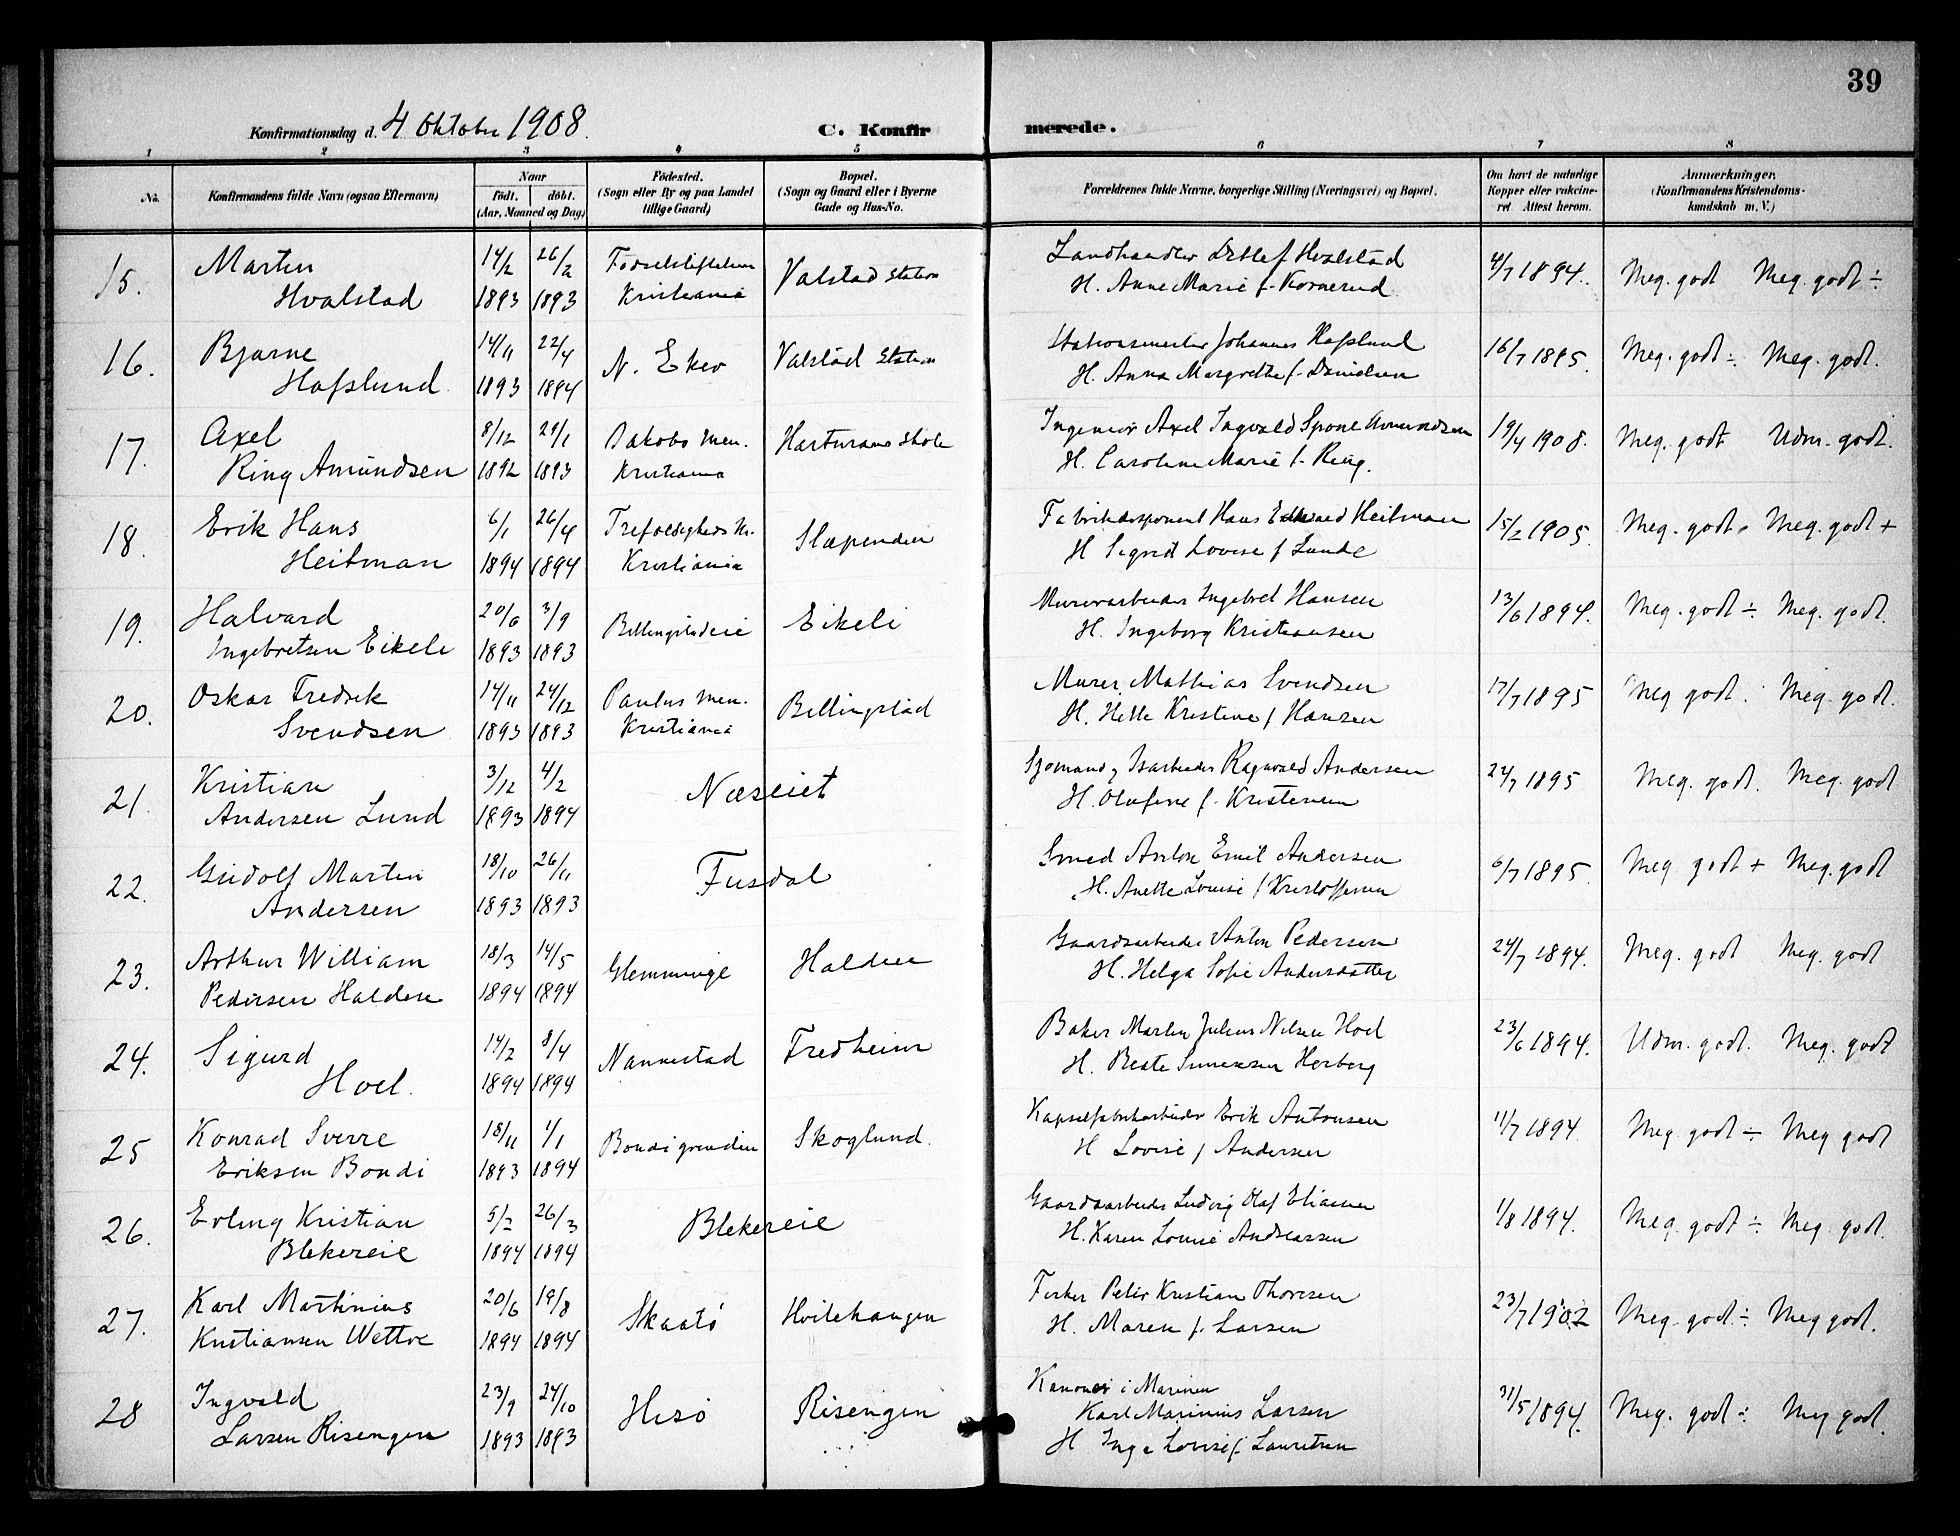 39
Konfirmationsdag d. 4 Oktober 1908.
C. Konfirmerede.
1 2 3 4 5 6 7 8
No.
Konfirmandens fulde Navn (ogsaa Efternavn)
Naar
Født. døbt.
(Aar, Maaned og Dag)
Fødested.
(Sogn eller By og paa Landet
tillige Gaard)
Bopæl.
(Sogn og Gaard eller i Byerne
Gade og Hus-No.
Forældrenes fulde Navne, borgerlige Stilling (Næringsvei) og Bopæl.
Om havt de naturlige
Kopper eller vakcineret. Attest herom.
Anmærkninger,
(Konfirmandens Kristendomskundskab m. V.)
15. Martin 14/2 26/2 Fødselsstiftelsen Valstad Station Landhandler Detlef Hvalstad 4/7 1894. Meg. godt Meg. godt ÷
Hvalstad 1893 1893 Kristiania H. Anne Marie f. Kornerud
16. Bjarne 14/11 22/4 N. Eker Valstad Station Stationsmester Johannes Hafslund 16/7 1895. Meg. godt ÷ Meg. godt.
Hafslund 1893 1894 H. Anna Margrethe f. Danielsen
17. Axel 8/12 29/1 Jakobs Men. Ingeniør Axel Ingvald Spone Amundsen 19/4 1908. Meg. godt Udm. godt.
Ring Amundsen 1892 1893 Kristiania H. Caroline Marie f. Ring.
18. Erik Hans 6/1 26/4 Trefoldigheds M. Slæpenden Hans Edvard Heitman 15/2 1905. Meg. godt. Meg. godt +
Heitman 1894 1894 Kristiania H Sigrid Lovise f Lunde
19. Halvard 20/6 3/9 Billingstadeie Eikeli Murerarbeider Ingebret Hansen 13/6 1894. Meg. godt ÷ Meg. godt.
Ingebretsen Eikeli 1893 1893 H. Ingeborg Kristiansen
20. Oskar Fredrik 14/11 24/12 Paulus Men. Billingstad Murer Mathias Svendsen 17/7 1895 Meg godt. Meg. godt.
Svendsen 1893 1893 Kristiania H. Helle Kristine f Hansen
21. Kristian 3/12 4/2 Næseiet Sjømand, Isarbeider Ragnvald Andersen 24/7 1895 Meg. godt. Meg. godt
Andersen Lund 1893 1894 H. Olufine f. Kristensen
22. Gudolf Martin 18/10 26/11 Fusdal Smed Anton Emil Andersen 6/7 1895. Meg godt + Meg. godt
Andersen 1893 1893 H. Anette Louise f Kristoffersen
23. Arthur William 18/3 14/5 Glemminge Halden Gaardsarbeider Anton Pedersen 24/7 1894. Meg. godt Meg. godt
Pedersen Halden 1894 1894 H. Helga Sofie Andersdatter
24. Sigurd 14/2 8/4 Nannestad Fredheim Baker Martin Julius Nilsen Hoel 23/6 1894. Udm. godt. Meg. godt
Hoel. 1894 1894 H. Beate Simensen Herberg
25 Konrad Sverre 18/11 1/1 Bondigrenden Skoglund. Kapselfabrikarbeider Erik Antonsen 11/7 1894. Meg. godt ÷ Meg godt
Eriksen Bondi 1893 1894 H Lovise f Andersen
26. Erling Kristian 5/2 26/3 Blekereie Gaardsarbeider Ludvig Olaf Eliassen 1/8 1894. Meg. godt ÷ Meg. godt.
Blekereie 1894 1894 H. Karen Louise Andreassen
27. Karl Martinius 20/6 19/8 Skaatø Hvitehaugen Fisker Peter Kristian Thoresen 23/7 1902 Meg. godt ÷ Meg godt.
Kristiansen Wettre 1894 1894 H. Maren f. Larsen
28 Ingvald 23/9 24/10 Hisø Risengen Kanoner i Marinen 31/5 1894. Meg. godt ÷ Meg godt.
Larsen Risengen 1893 1893 Karl Marinius Larsen
H Inga Lovise f. Lauritsen